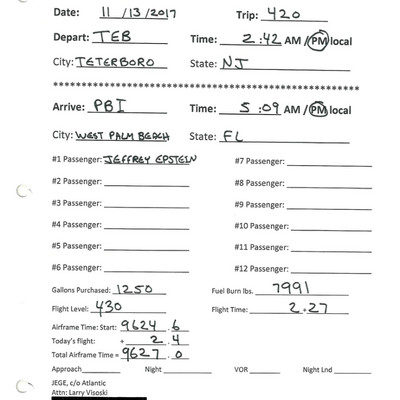 Date: 11 /13/2017 Trip: 420
Depart: TEB Time: 2:42 AM / PM local
City: TETERBORO State: NJ
**********************************************************
Arrive: PBI Time: 5:09 AM / PM local
City: WEST PALM BEACH State: FL
#1 Passenger: JEFFREY EPSTEIN #7 Passenger:
#2 Passenger: #8 Passenger:
#3 Passenger: #9 Passenger:
#4 Passenger: #10 Passenger:
#5 Passenger: #11 Passenger:
#6 Passenger: #12 Passenger:
Gallons Purchased: 1250 Fuel Burn lbs. 7991
Flight Level: 430 Flight Time: 2+27
Airframe Time: Start: 9624.6
Today's flight: + 2.4
Total Airframe Time = 9627.0
Approach Night VOR Night Lnd
JEGE, c/o Atlantic
Attn: Larry Visoski